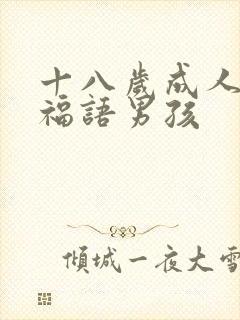 十八歲成人
福語男孩
傾城一夜大雪